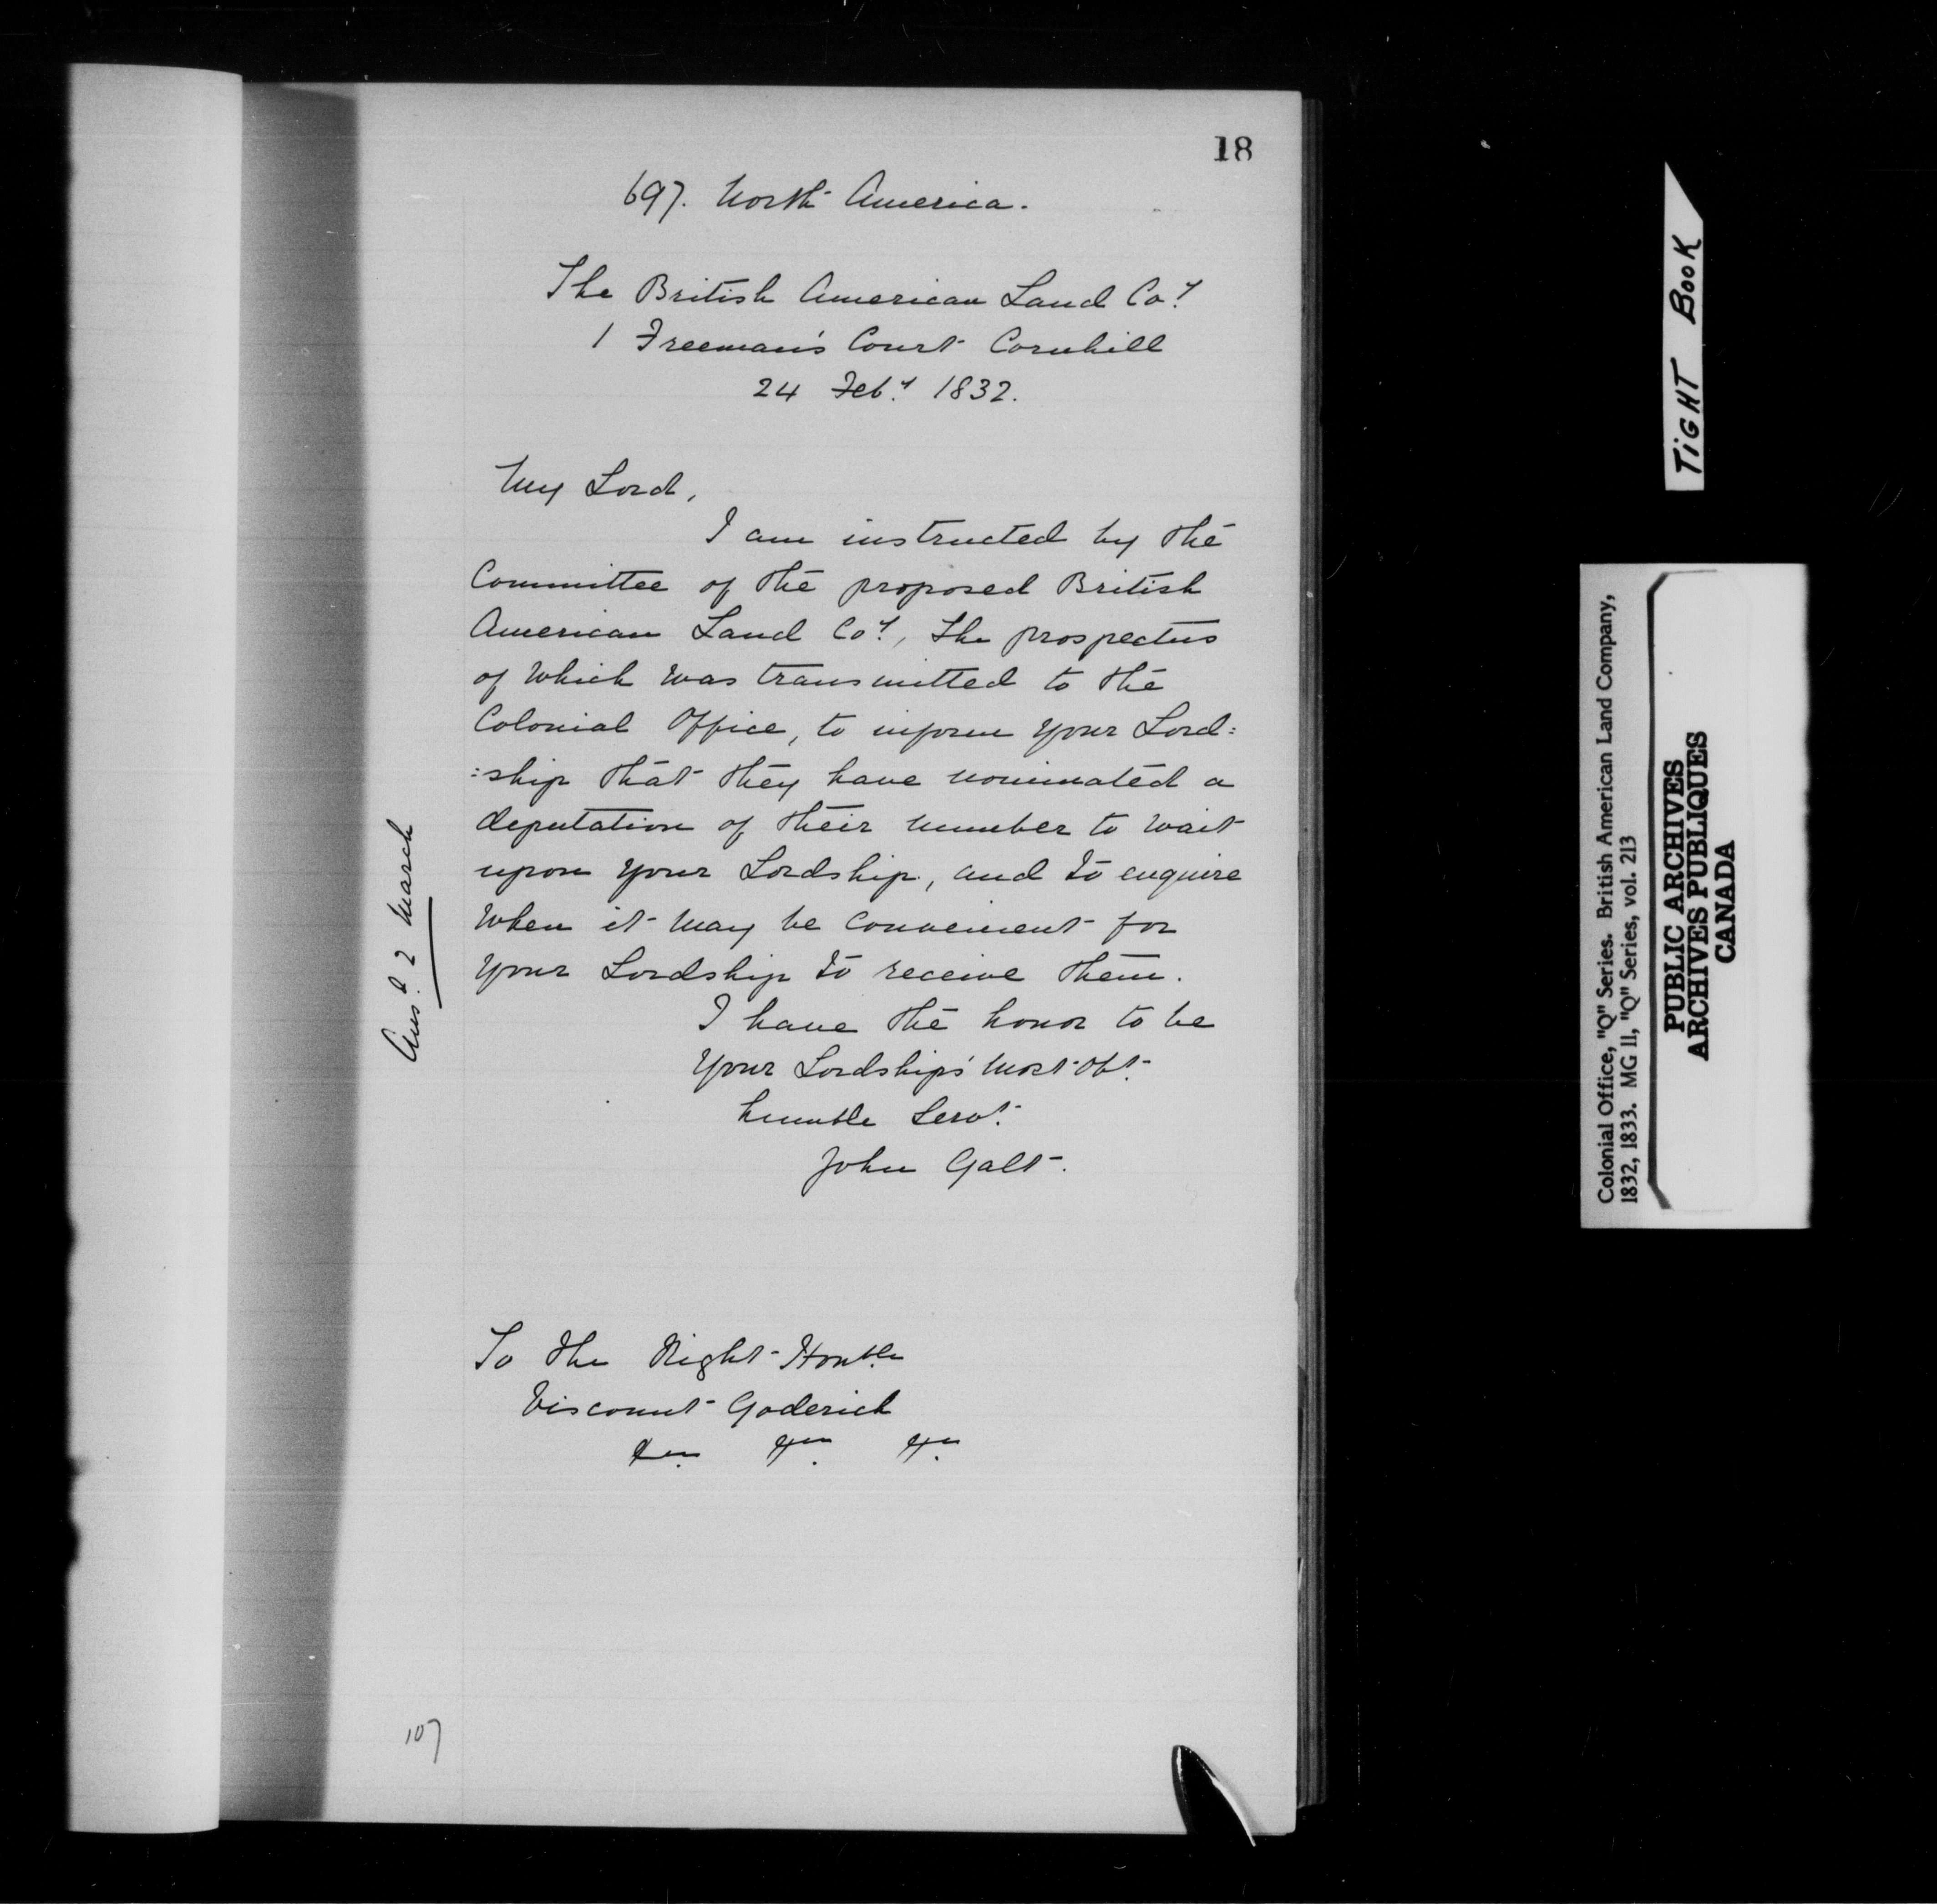 18
697. North America.
The British American Land Coy.
1 Freeman's Court Cornhill
24 Feby. 1832.
My Lord,
I am instructed by the
Committee of the proposed British
American Land Coy., the prospectus
of which was transmitted to the
Colonial Office, to inform your Lord:
:ship that they have nominated a
deputation of their number to wait
upon your Lordship, and to enquire
when it may be convenient for
your Lordship to receive them.
I have the honor to be
Your Lordships' most obt.
humble Servt.
John Galt.
Ansd. 2 March
To the Right Honble.
Viscount Goderich
&c. &c. &c.
107
TIGHT BOOK
Colonial Office, "Q" Series. British American Land Company,
1832, 1833. MG 11, "Q" Series, vol. 213
PUBLIC ARCHIVES
ARCHIVES PUBLIQUES
CANADA